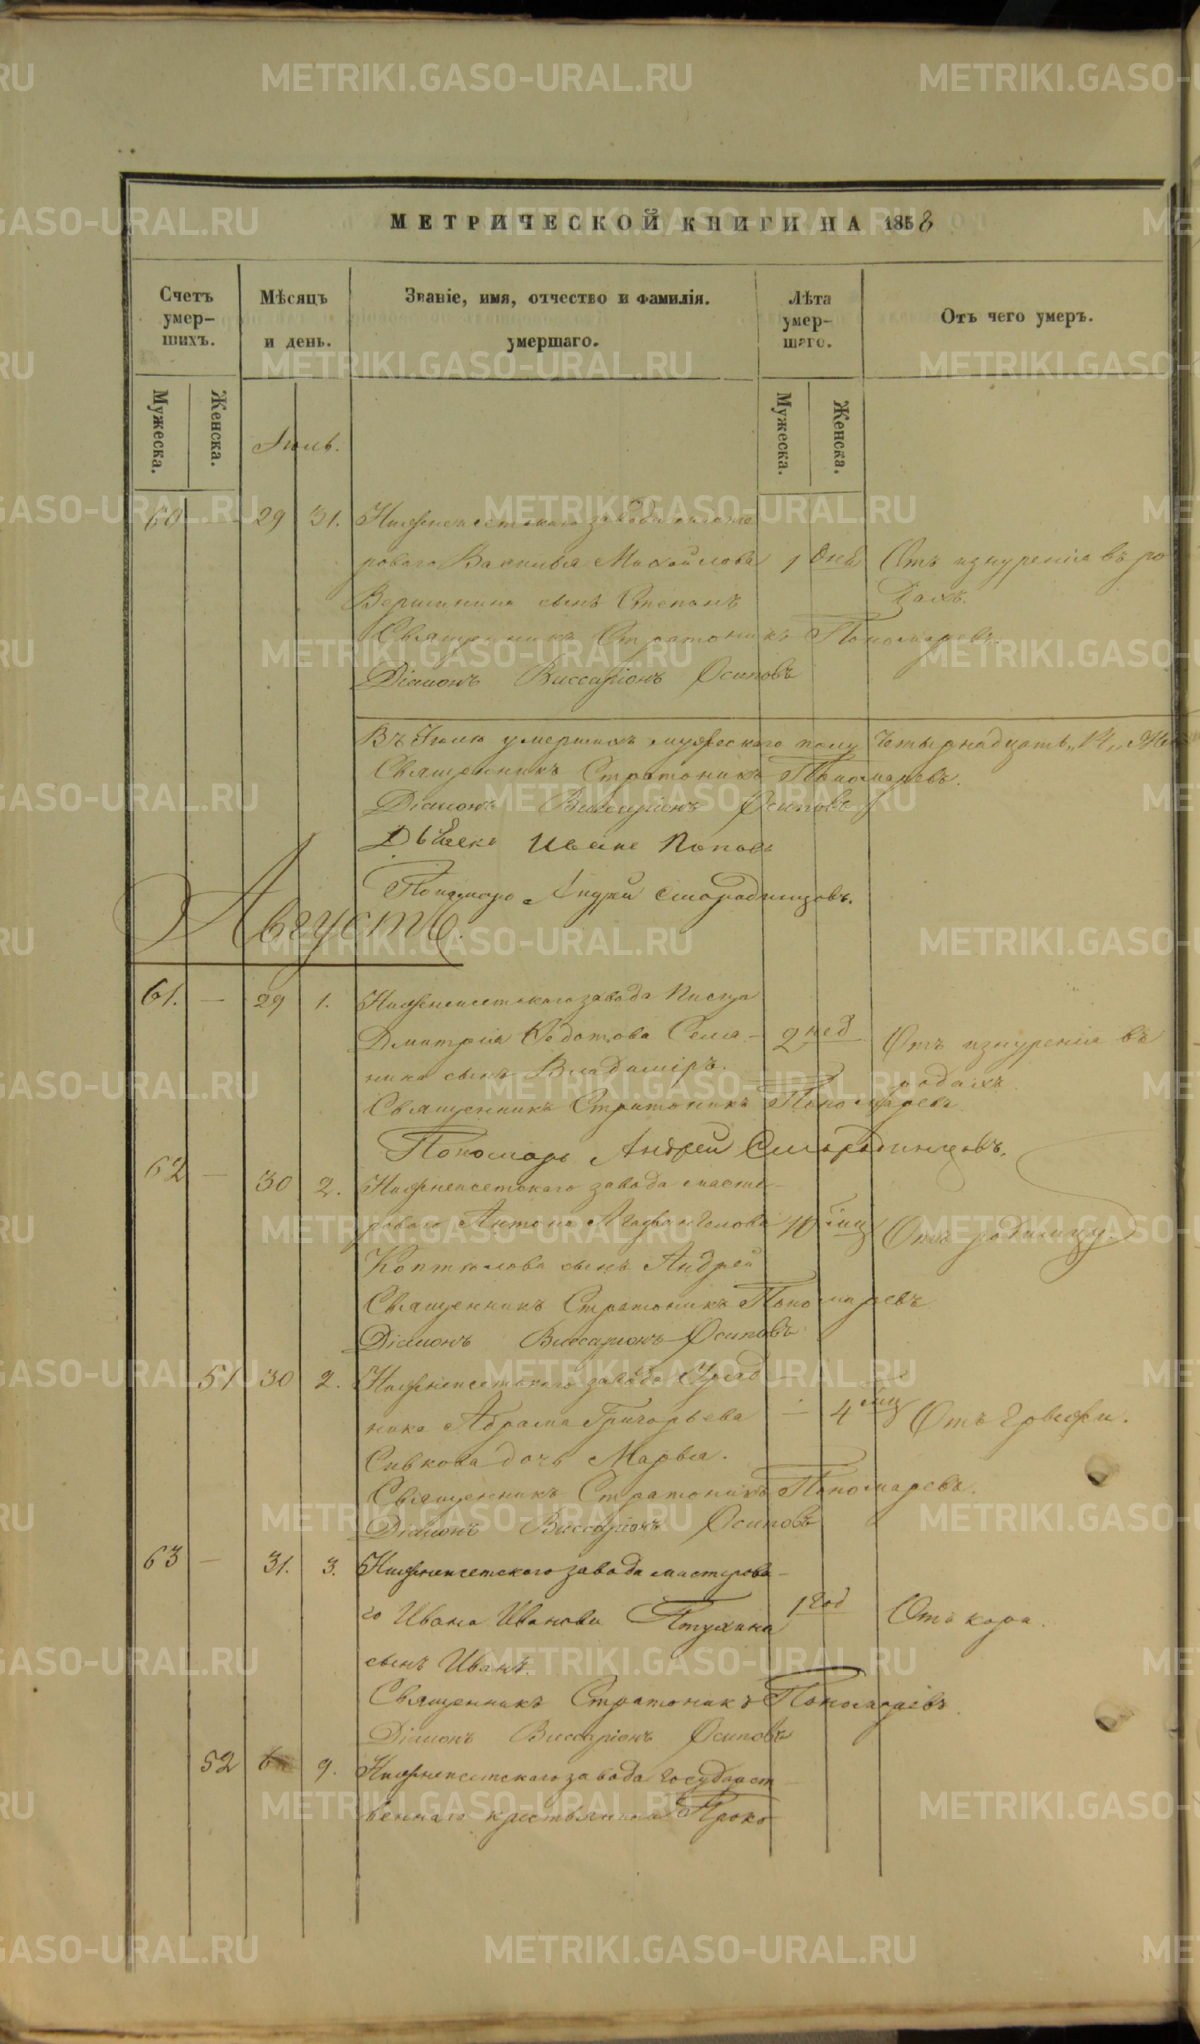 МЕТРИЧЕСКОЙ КНИГИ НА 1858
Счетъ умер-шихъ.
Мѣсяцъ и день.
Званіе, имя, отчество и фамилія. умершаго.
Лѣта умер-шаго.
Отъ чего умеръ.
Мужеска.
Женска.
Мужеска.
Женска.
Іюль.
60 29 31. Нижнеисетскаго завода мастероваго Василья Михайлова 1 день Отъ изнуренія въ ро
Вершинина сынъ Степанъ дахъ.
Священникъ Стратоникъ Пономаревъ.
Діаконъ Виссаріонъ Осиповъ
Въ Іюлѣ умершихъ мужескаго полу Четырнадцать „14„
Священникъ Стратоникъ Пономаревъ.
Діаконъ Виссаріонъ Осиповъ
Дьячекъ Иванъ Поповъ
Пономарь Андрей Смородинцовъ.
Августъ.
61. — 29 1. Нижнеисетскаго завода Писца
Дмитрія Федотова Семя- 2 нед Отъ изнуренія въ
нина сынъ Владиміръ. родахъ.
Священникъ Стратоникъ Пономаревъ
Пономарь Андрей Смородинцовъ.
62 — 30 2. Нижнеисетскаго завода масте-
роваго Антона Агафангелова 10 мц Отъ родимцу.
сынъ Андрей
Священникъ Стратоникъ Пономаревъ
Діаконъ Виссаріонъ Осиповъ
51 30 2. Нижнеисетскаго завода Уряд
ника Абрама Григорьева — 4 мц Отъ грыжи.
Сивкова дочь Марья.
Священникъ Стратоникъ Пономаревъ.
Діаконъ Виссаріонъ Осиповъ
63 — 31. 3. Нижнеисетскаго завода мастерова-
го Ивана Иванова Птухина 1 год Отъ кора.
сынъ Иванъ
Священникъ Стратоникъ Пономаревъ.
Діаконъ Виссаріонъ Осиповъ
52 9. Нижнеисетскаго завода государст
веннаго крестьянина Проко
METRIKI.GASO-URAL.RU